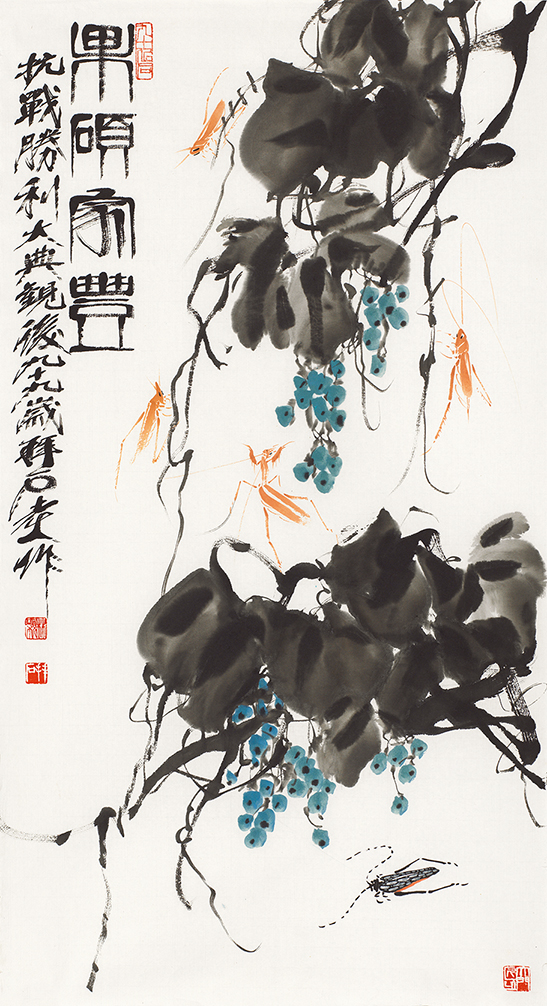 果碩家豐
抗戰勝利大典觀後九十九歲拜石老作